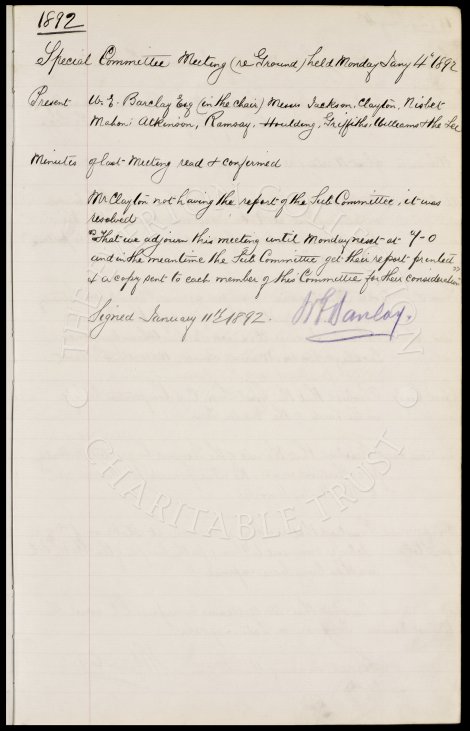 1892
Special Committee Meeting (re Ground) held Monday Jany 4th 1892
Present W. E. Barclay Esq (in the chair) Messrs Jackson, Clayton, Nisbet
Mahon Atkinson, Ramsay, Houlding, Griffiths, Williams & the Sec
Minutes of last Meeting read & confirmed
Mr Clayton not having the report of the Sub Committee, it was
resolved
"That we adjourn this meeting until Monday next at 7-0
and in the meantime the Sub Committee get their report printed
& a copy sent to each member of this Committee for their consideration"
Signed January 11th 1892.
THE EVERTON COLLECTION
CHARITABLE TRUST